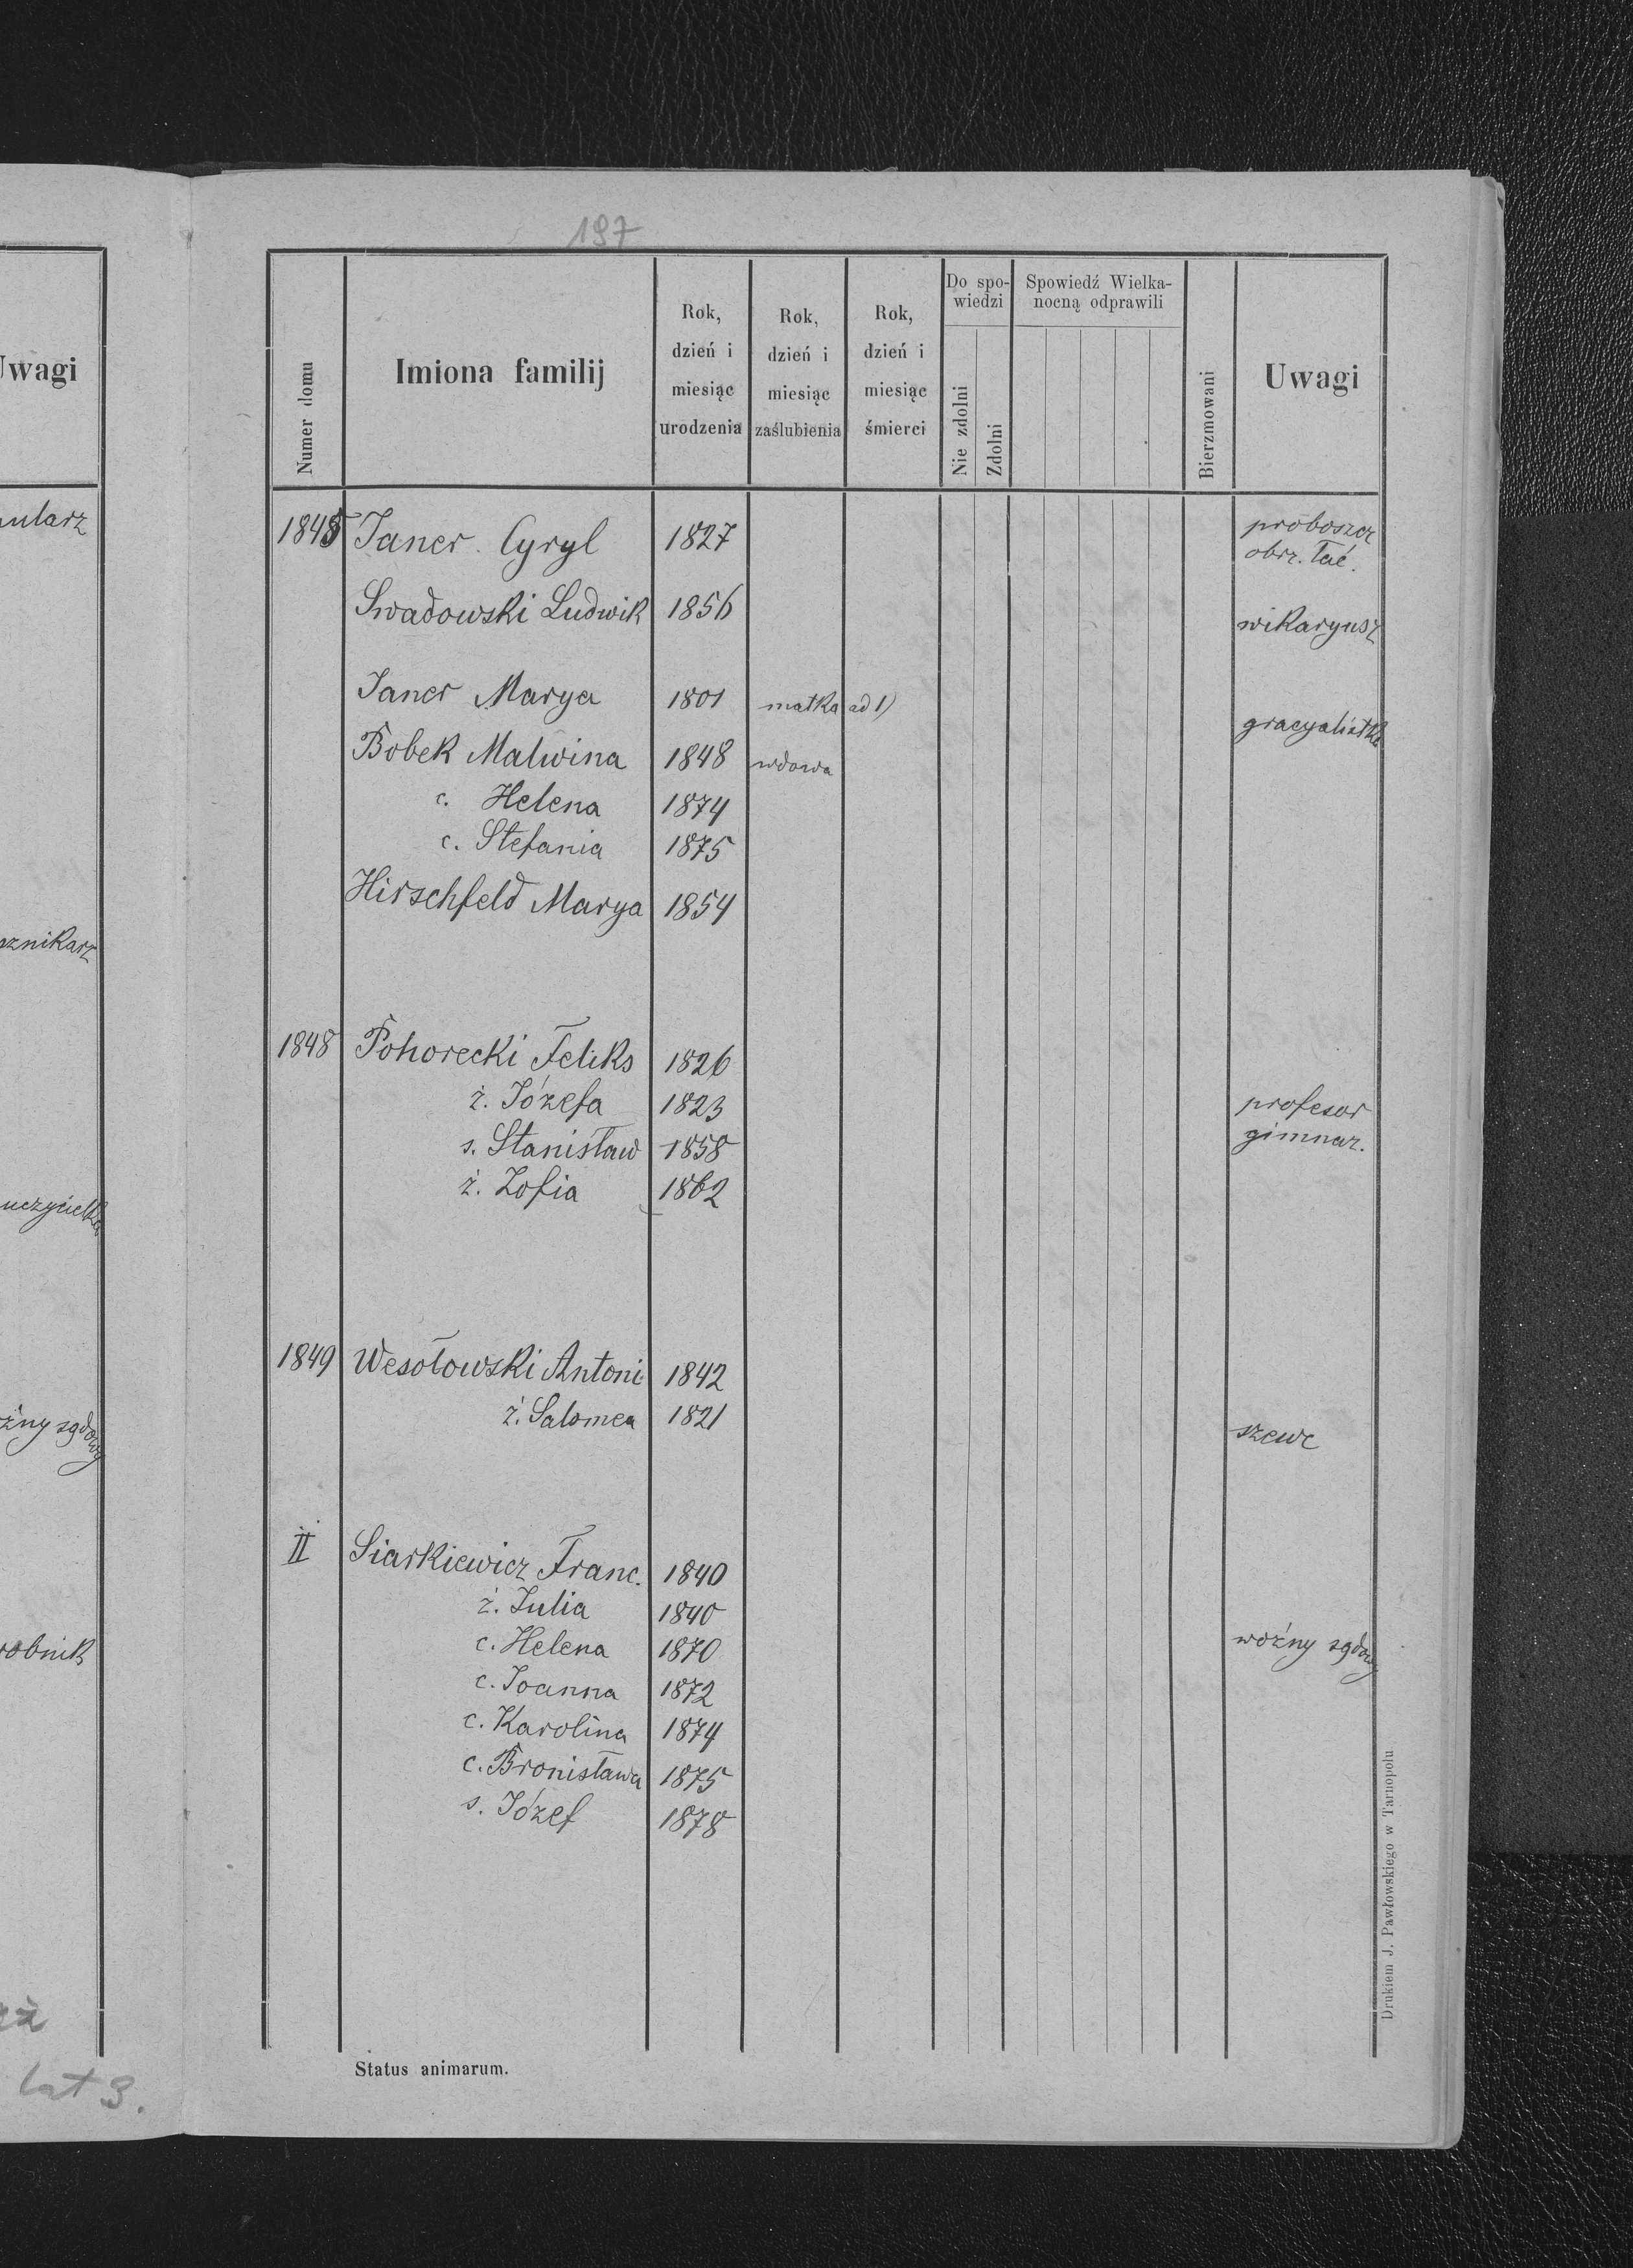 197
Numer domu
Imiona familij
Rok, dzień i miesiąc urodzenia
Rok, dzień i miesiąc zaślubienia
Rok, dzień i miesiąc śmierci
Do spo-
wiedzi
Nie zdolni
Zdolni
Spowiedź Wielka-
nocną odprawili
Bierzmowani
Uwagi
1845 Janer Cyryl 1827 proboszcz
obrz. łać.
Swadowski Ludwik 1856 wikaryusz
Janer Marya 1801 matka ad 1)
Bobek Malwina 1848 wdowa gracyalistka
c. Helena 1874
c. Stefania 1875
Hirschfeld Marya 1854
1848 Pohorecki Feliks 1826
ż. Józefa 1823 profesor
s. Stanisław 1858 gimnaz.
ż. Zofia 1862
1849 Wesołowski Antoni 1842
ż. Salomea 1821 szewc
II Siarkiewicz Franc. 1840
ż. Julia 1840
c. Helena 1870 woźny sądowy
c. Joanna 1872
c. Karolina 1874
c. Bronisława 1875
s. Józef 1878
Status animarum.
Drukiem J. Pawłowskiego w Tarnopolu
Uwagi
uczycielka
lat 3.